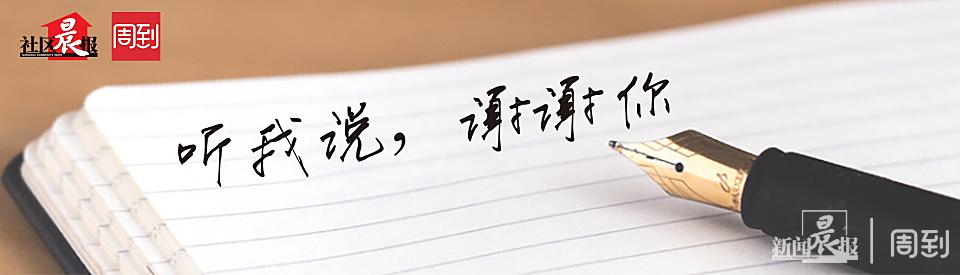 社区晨报 周到
听我说，谢谢你
新闻晨报 周到